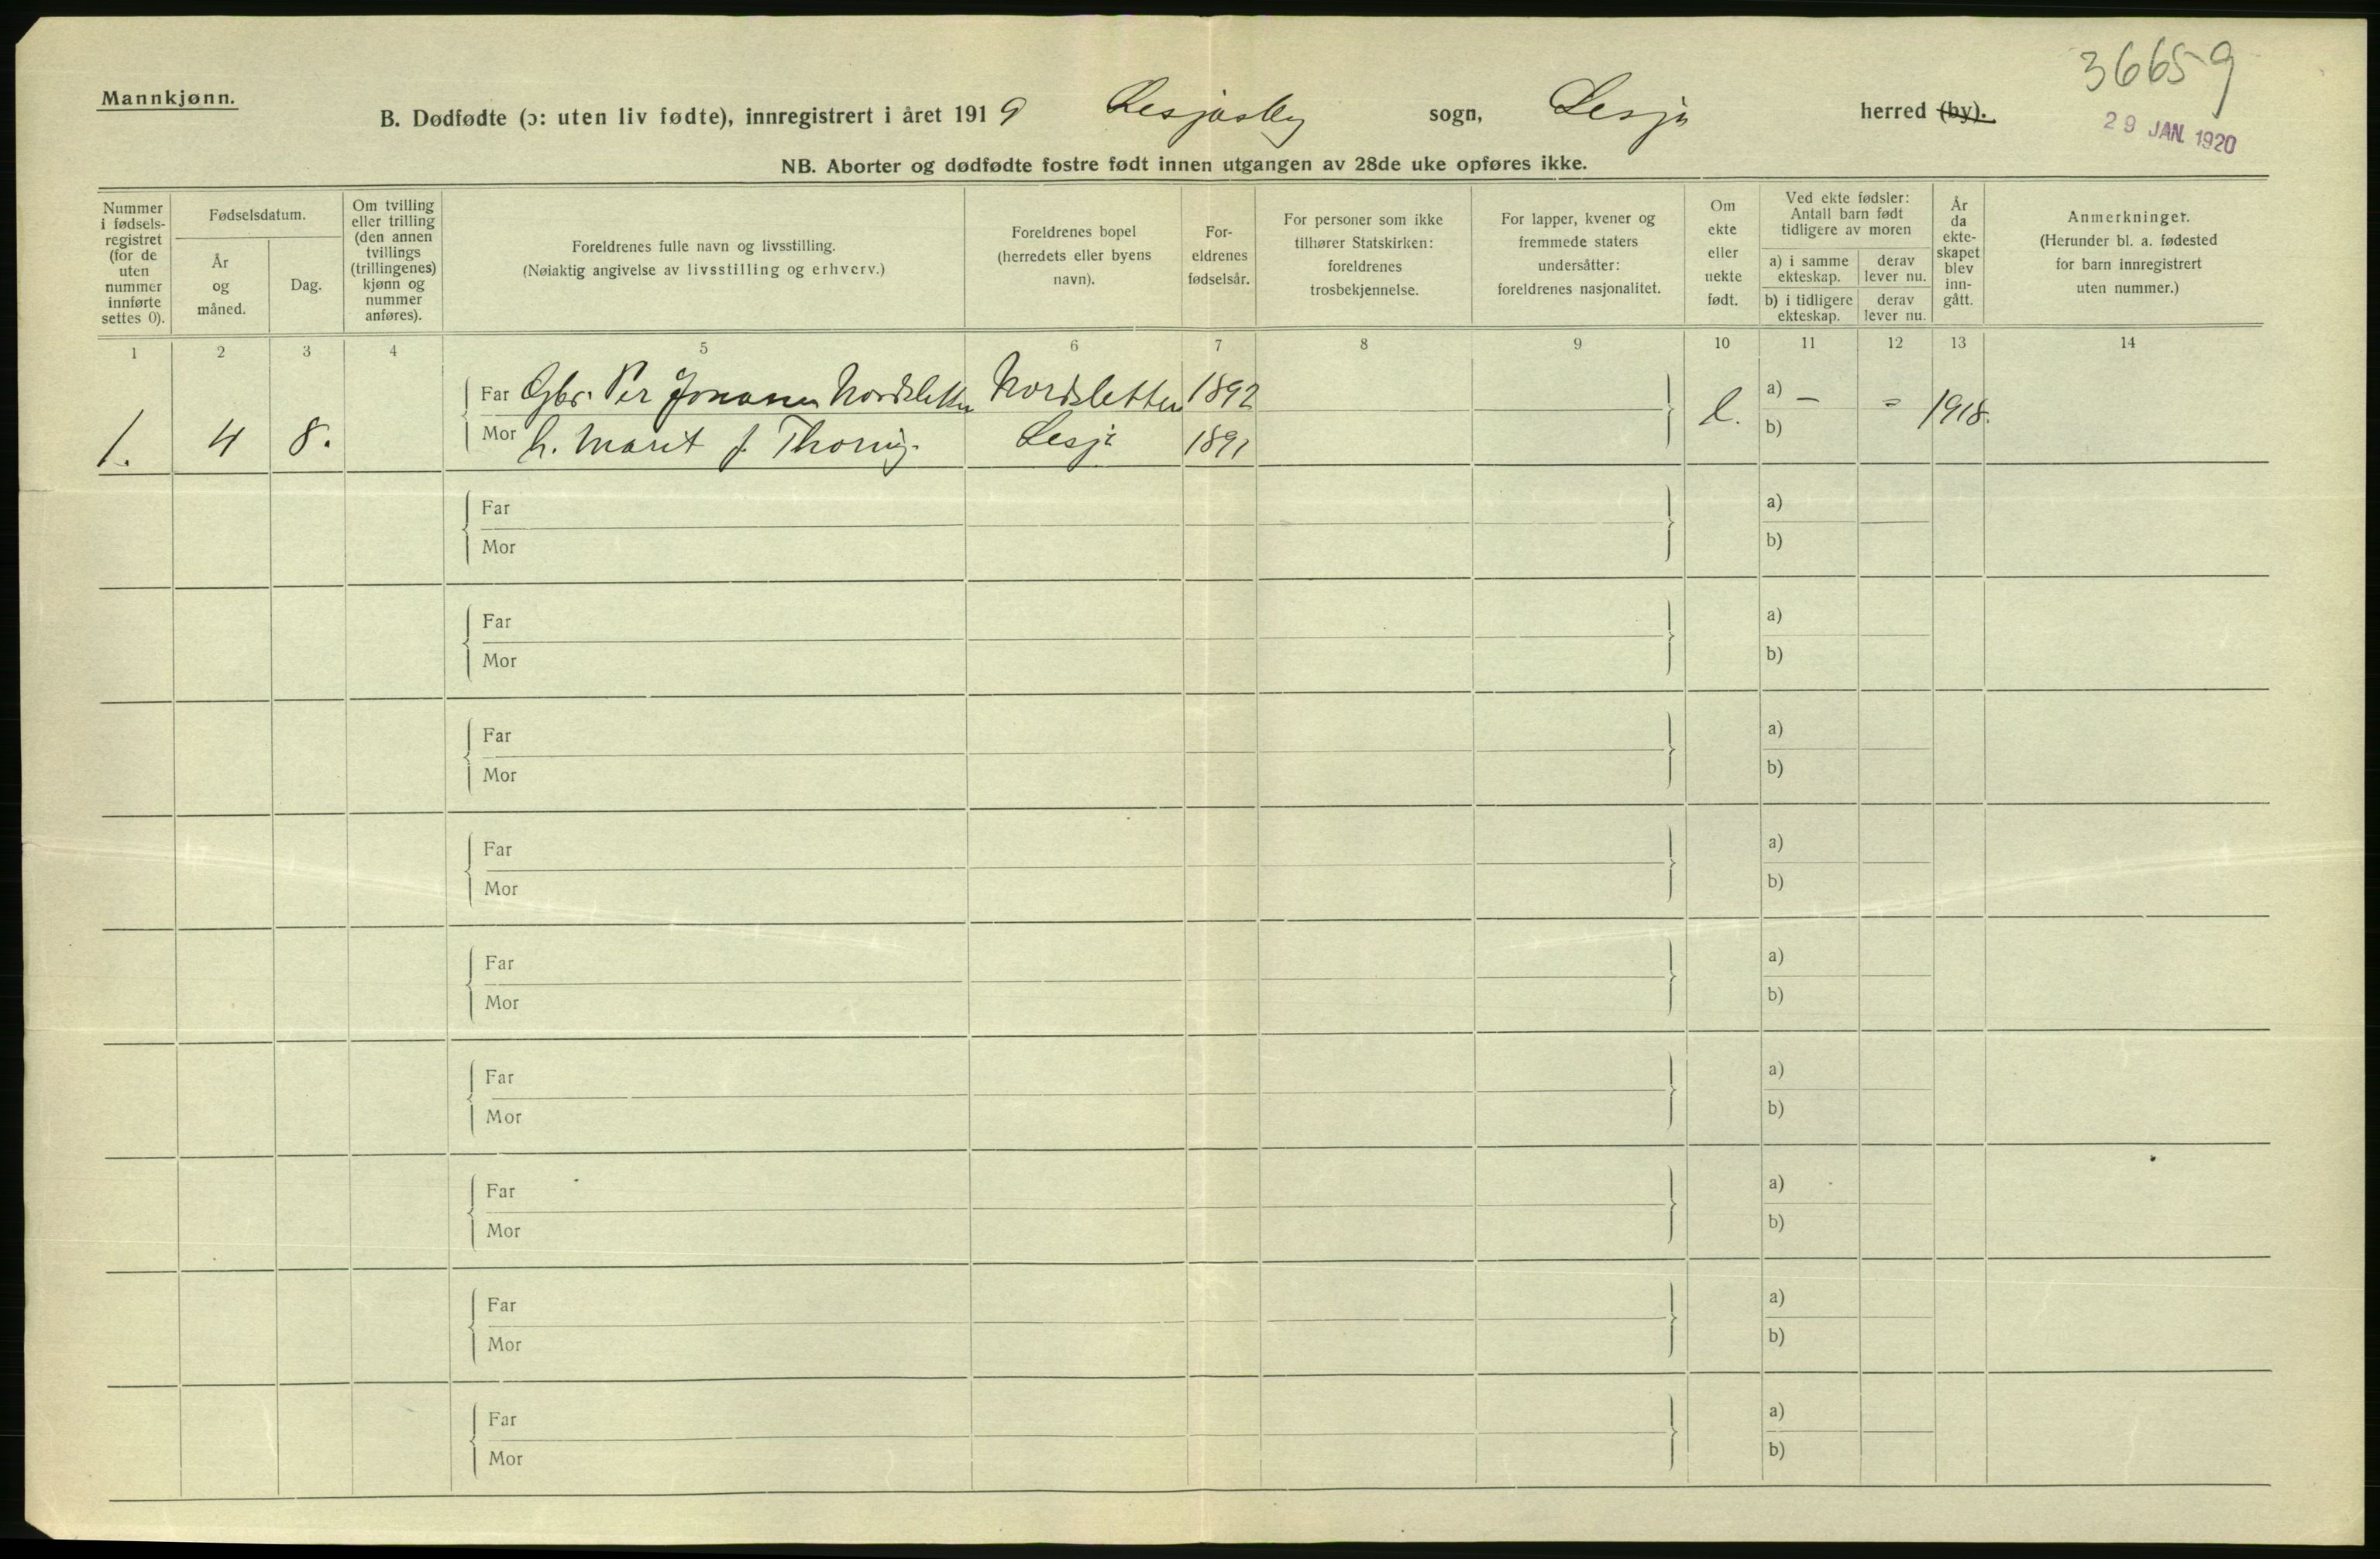 36659
29 JAN. 1920
Mannkjønn.
B. Dødfødte (ɔ: uten liv fødte), innregistrert i året 1919 sogn, Lesja herred (by).
NB. Aborter og dødfødte fostre født innen utgangen av 28de uke opføres ikke.
Nummer
i fødsels-
registret
(for de
uten
nummer
innførte
settes 0).
Fødselsdatum.
År
og
måned.
Dag.
Om tvilling
eller trilling
(den annen
tvillings
(trillingenes)
kjønn og
nummer
anføres).
Foreldrenes fulle navn og livsstilling.
(Nøiaktig angivelse av livsstilling og erhverv.)
Foreldrenes bopel
(herredets eller byens
navn).
For-
eldrenes
fødselsår.
For personer som ikke
tilhører Statskirken:
foreldrenes
trosbekjennelse.
For lapper, kvener og
fremmede staters
undersåtter:
foreldrenes nasjonalitet.
Om
ekte
eller
uekte
født.
Ved ekte fødsler:
Antall barn født
tidligere av moren
a) i samme
ekteskap.
derav
lever nu.
b) i tidligere
ekteskap.
derav
lever nu.
År
da
ekte-
skapet
blev
inn-
gått.
Anmerkninger.
(Herunder bl. a. fødested
for barn innregistrert
uten nummer.)
1 2 3 4 5 6 7 8 9 10 11 12 13 14
Far Gbr. Per Nordsletten Nordsletten 1892 a) –
1. 4 8. e. = 1918.
Mor h. Marit f. Lesja 1891 b)
Far a)
Mor b)
Far a)
Mor b)
Far a)
Mor b)
Far a)
Mor b)
Far a)
Mor b)
Far a)
Mor b)
Far a)
Mor b)
Far a)
Mor b)
Far a)
Mor b)